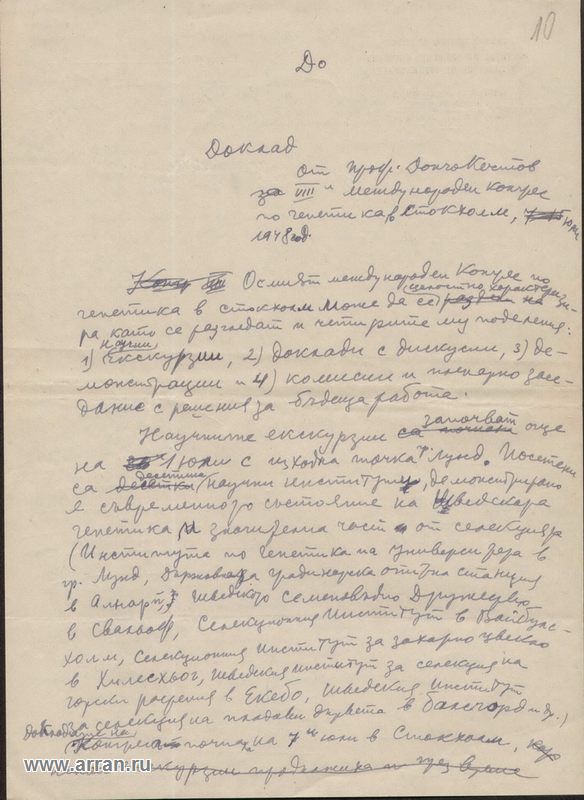 10
До
Доклад
От проф. Дончо Костов
за VIII и международен конгрес
по генетика в Стокхолм, юли
1948 год.
Конгр VIII Осмият международен Конгрес по
генетика в Стокхолм може да се цялостно характеризи-
ра като се разгледат и четирите му поделения:
1) Научни екскурзии, 2) доклади с дискусии, 3) де-
монстрации и 4) комисии и пленарно засе-
дание с решения за бъдеща работа.
Научните екскурзии са започват още
на 1 юли с изходна точка Лунд. Посетени
са десетина научни институти, демонстрирано
е съвременното състояние на Шведската
генетика и значителна част от селекцията
(Института по генетика на университета в
гр. Лунд, Държавната градинарска опитна станция
в Алнарп, Шведското Семеновъдно Дружество
в Свальоф, Селекционния Институт в Вайбулс-
холм, Селекционния институт за захарно цвекло
в Хилесхьог, Шведския институт за селекция на
горски растения в Екебо, Шведския Институт
за селекция на плодови дървета в Балсгорд и др.)
Докладите на Конгреса почнаха на 7 и юли в Стокхолм,
екскурзии продължиха и през време
www.arran.ru